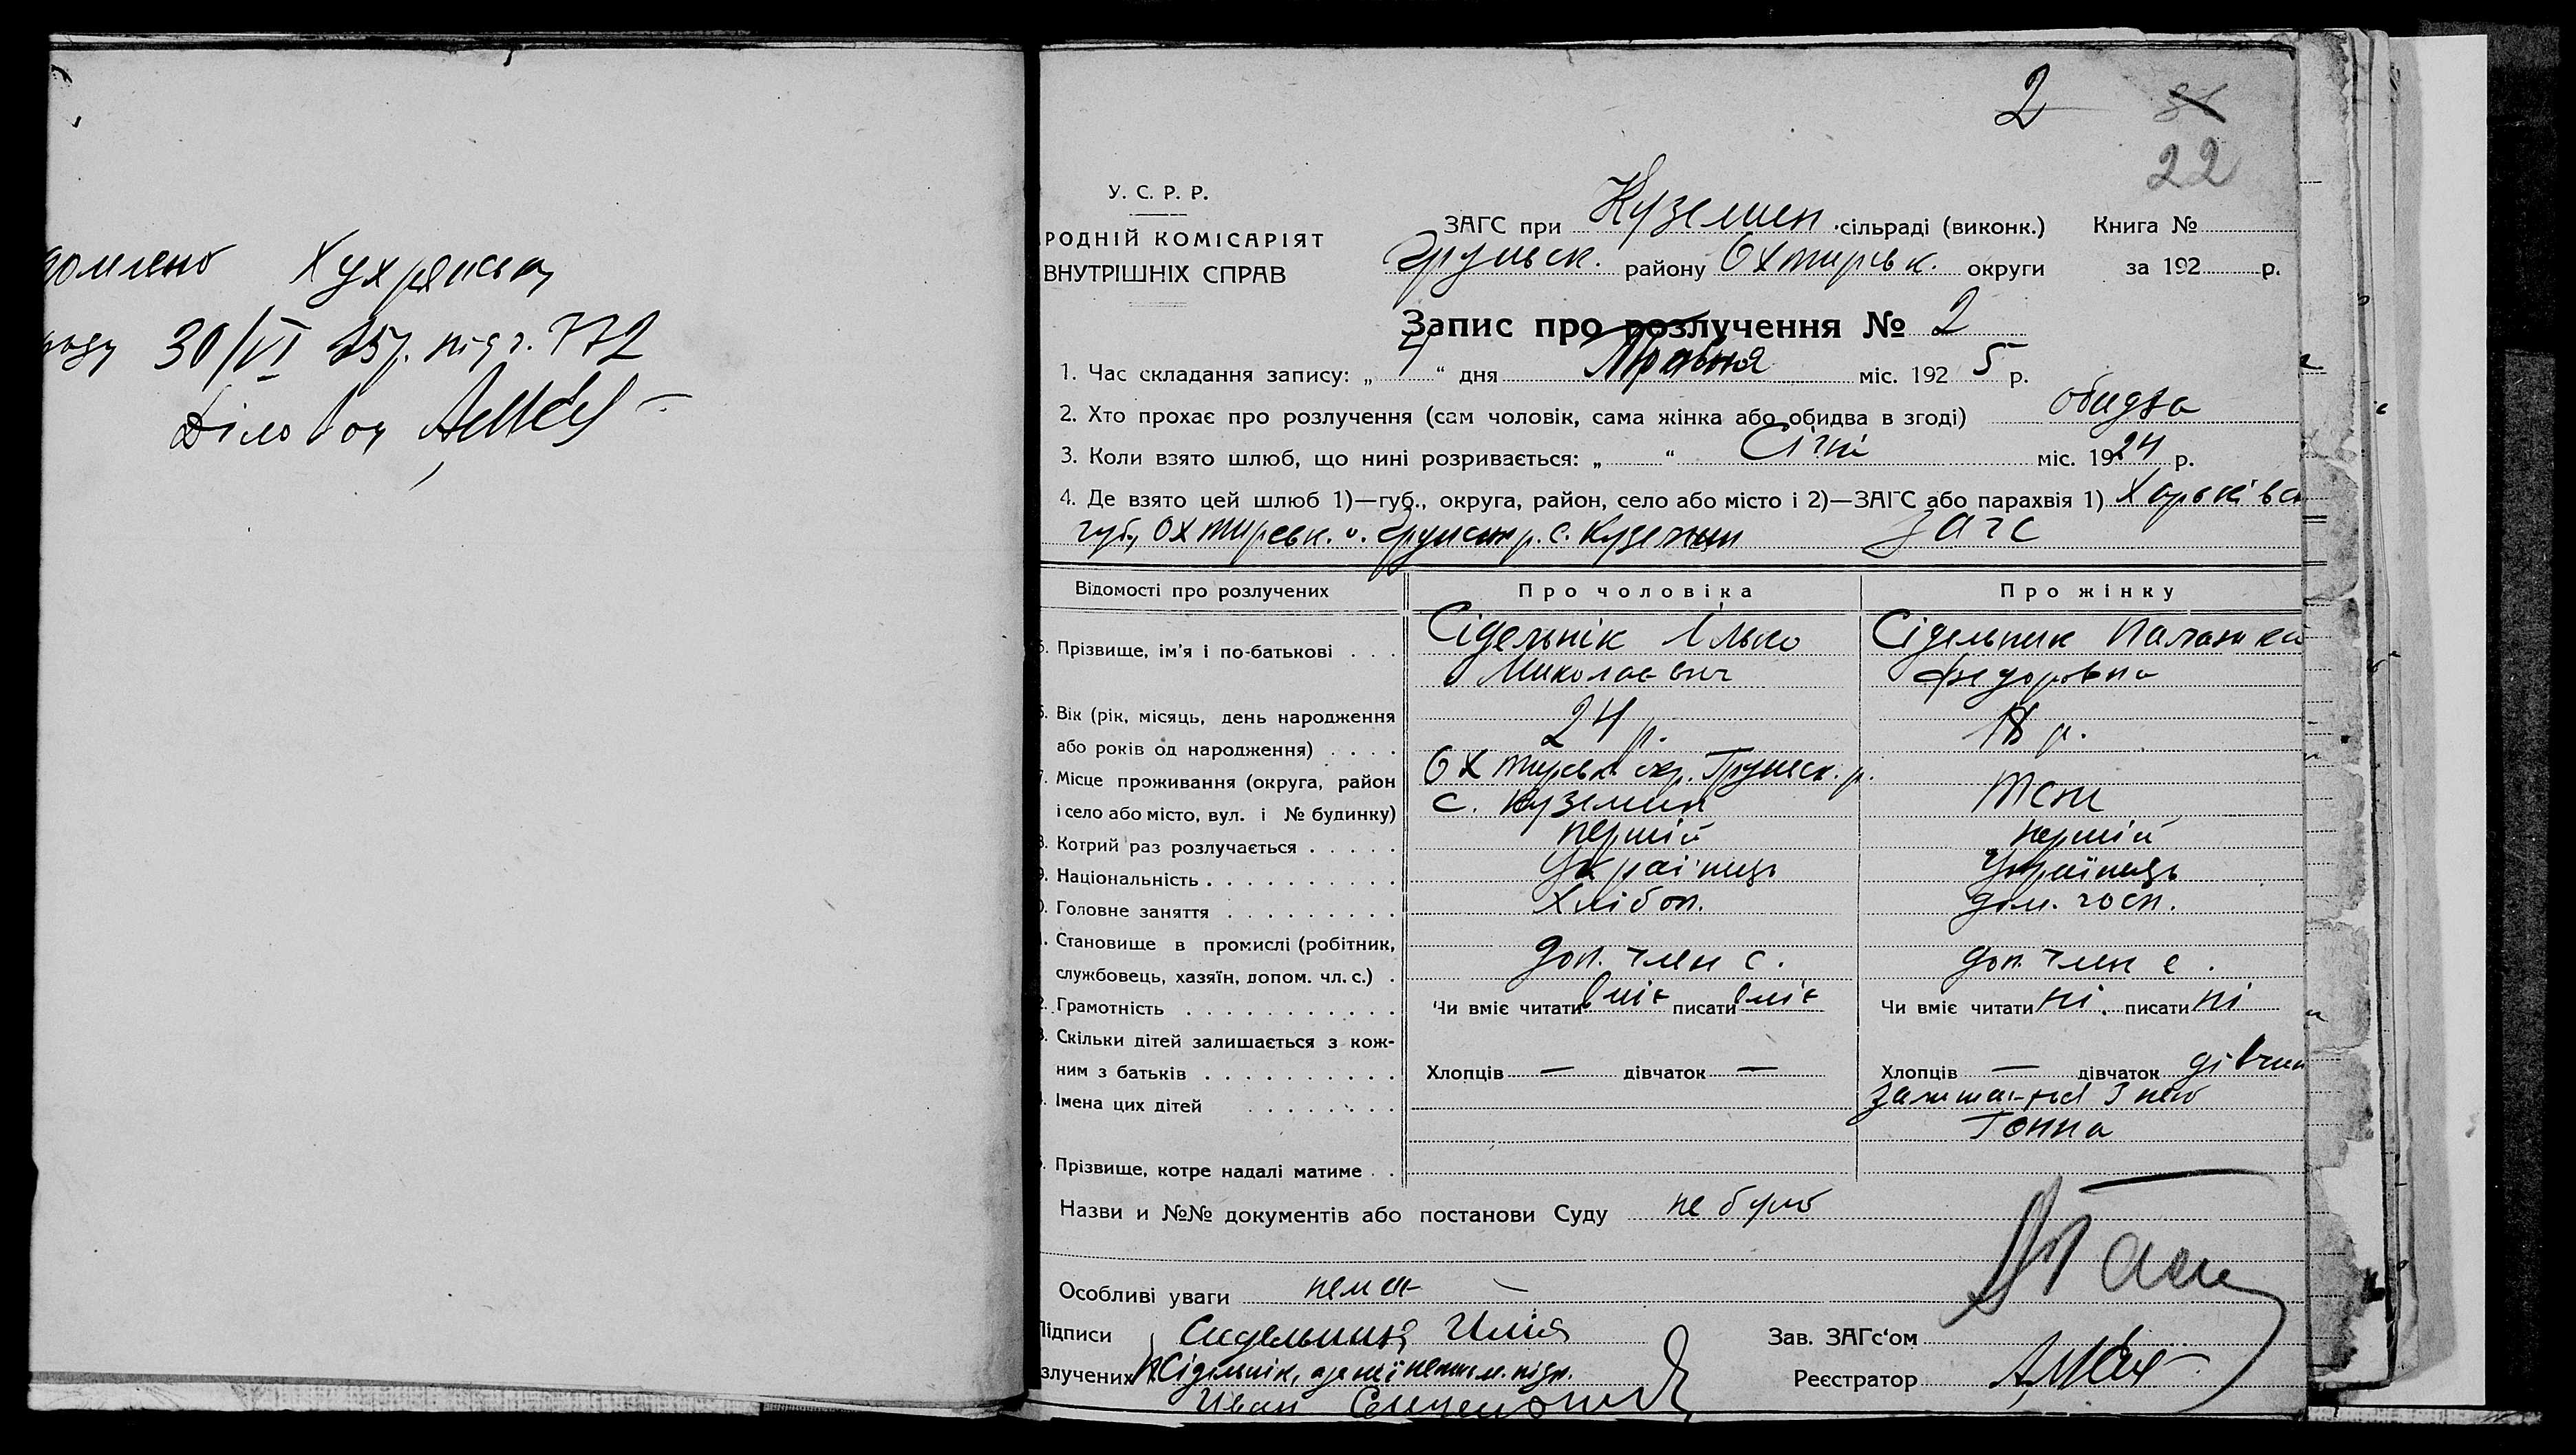 Хухрянськ
30/VI 25р. під ч. 772
Діловод
2
31
22
У. С. Р. Р.
РОДНІЙ КОМІСАРІЯТ
ВНУТРІШНІХ СПРАВ
ЗАГС при Куземен сільраді (виконк.) Книга №
Грунськ. району Охтирськ. округи за 192 р.
Запис про розлучення № 2
1. Час складання запису: „ 4 “ дня Травня міс. 192 5 р.
2. Хто прохає про розлучення (сам чоловік, сама жінка або обидва в згоді) обидва
3. Коли взято шлюб, що нині розривається: „ “ Січні міс. 1924 р.
4. Де взято цей шлюб 1)—губ., округа, район, село або місто і 2)—ЗАГС або парахвія 1) Харьківсь
губ., Охтирськ. о. Грунськ р. с. Куземин загс
Відомості про розлучених Про чоловіка Про жінку
Прізвище, ім'я і по-батькові . . . Сідельнік Ілько Сідельник Палажка
Миколаєвич Федоровна
Вік (рік, місяць, день народження
або років од народження) . . . . 24 р. 18 р.
Місце проживання (округа, район Охтирськ окр. Грунськ. р.
і село або місто, вул. і № будинку) с. Куземин теж
Котрий раз розлучається . . . . . перший перший
Національність . . . . . . . . . . Українець Українець
Головне заняття . . . . . . . . . Хлібоп. дом. госп.
Становище в промислі (робітник,
службовець, хазяїн, допом. чл. с.) . доп. член с. доп. член с.
Грамотність . . . . . . . . . . . Чи вміє читати вміє писати вміє Чи вміє читати ні. писати ні
Скільки дітей залишається з кож-
ним з батьків . . . . . . . . . . Хлопців — дівчаток — Хлопців — дівчаток дівчин
Імена цих дітей . . . . . . . . залишаєтьс з нею
Ганна
Прізвище, котре надалі матиме . .
Назви и №№ документів або постанови Суду не було
Особливі уваги немає
Підписи Сидельник Илія Зав. ЗАГс‘ом
злучених Сідельнік, а за неї непісьм. підп. Реєстратор
Иван